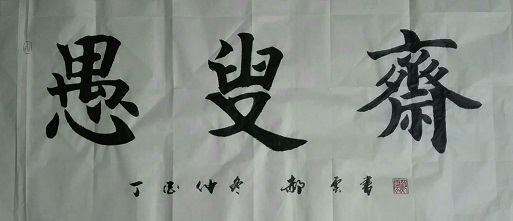 愚叟齋
丁酉仲冬 郝雲書